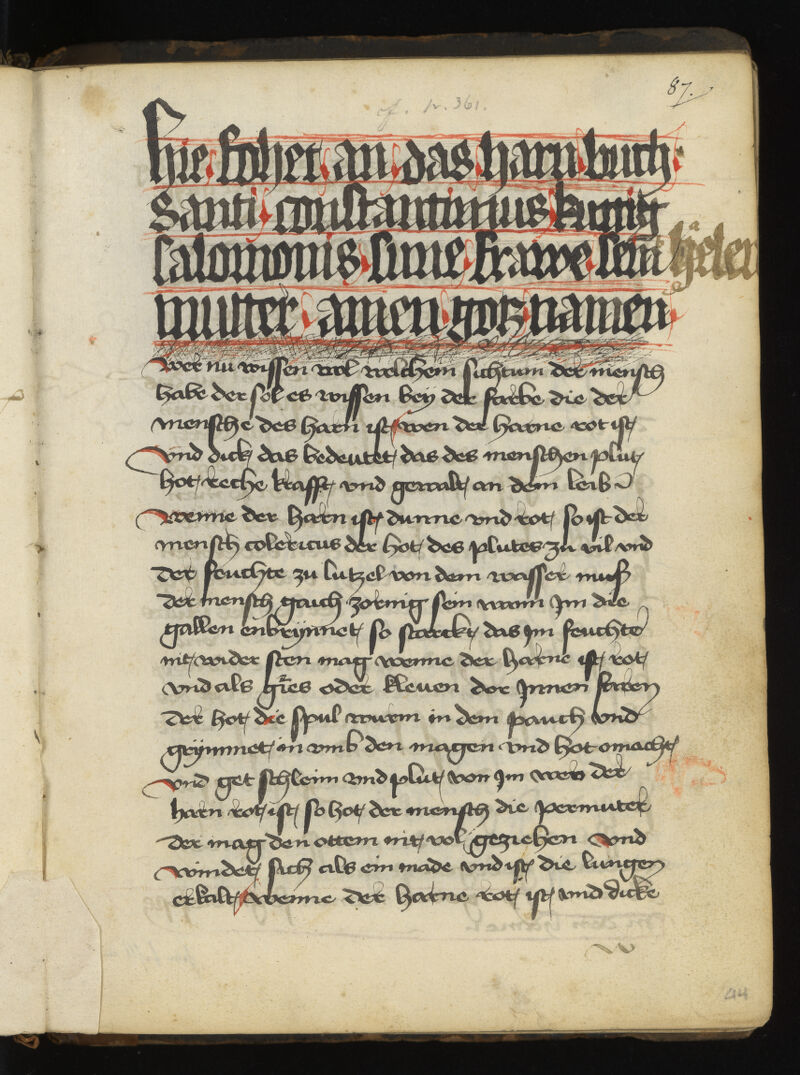 87.
cf. Nr. 361.
hie fohet an das harn buch
Santi constantinus kunig
salomonis sune frawe sein helen
mutter amen gotz namen
Wer nu wissen wol welchem sichtum der mensch
habe der sol es wissen bey der farbe die der
mensche des harn ist wen der harne rot ist
Vnd dick das bedeutet das des menschen plut
hot reche krafft vnd gewalt an dem leib
Wenne der harn ist dunne vnd rot so ist der
mensch colericus der hot des plutes zu vil vnd
der feuchte zu lutzel von dem wasser muß
der mensch gauch zornig sein wann Jm die
gallen enbrynnet so starckt das Jm feuchte
nit wider sten mag wenne der harne ist rot
vnd als gries oder kleuen dor Jnnen faren
der hot die spul wurm in dem pauch vnd
grymmet in vmb den magen vnd hot omacht
Vnd get schleim vnd plut von Jm wen der
harn rot ist so hot der mensch die permuter
der mag den ottem nit wol geziehen Vnd
windet sich als ein made vnd ist die lungen
erkalt Wenne der harne rot ist vnd dicke
44